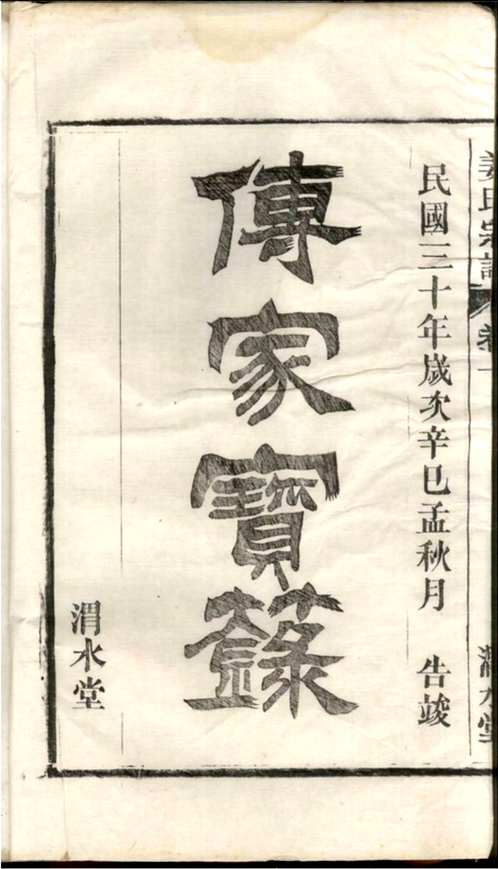 姜氏宗譜 卷一
渭水堂
民國三十年歲次辛巳孟秋月 告竣
傳家寶籙
渭水堂